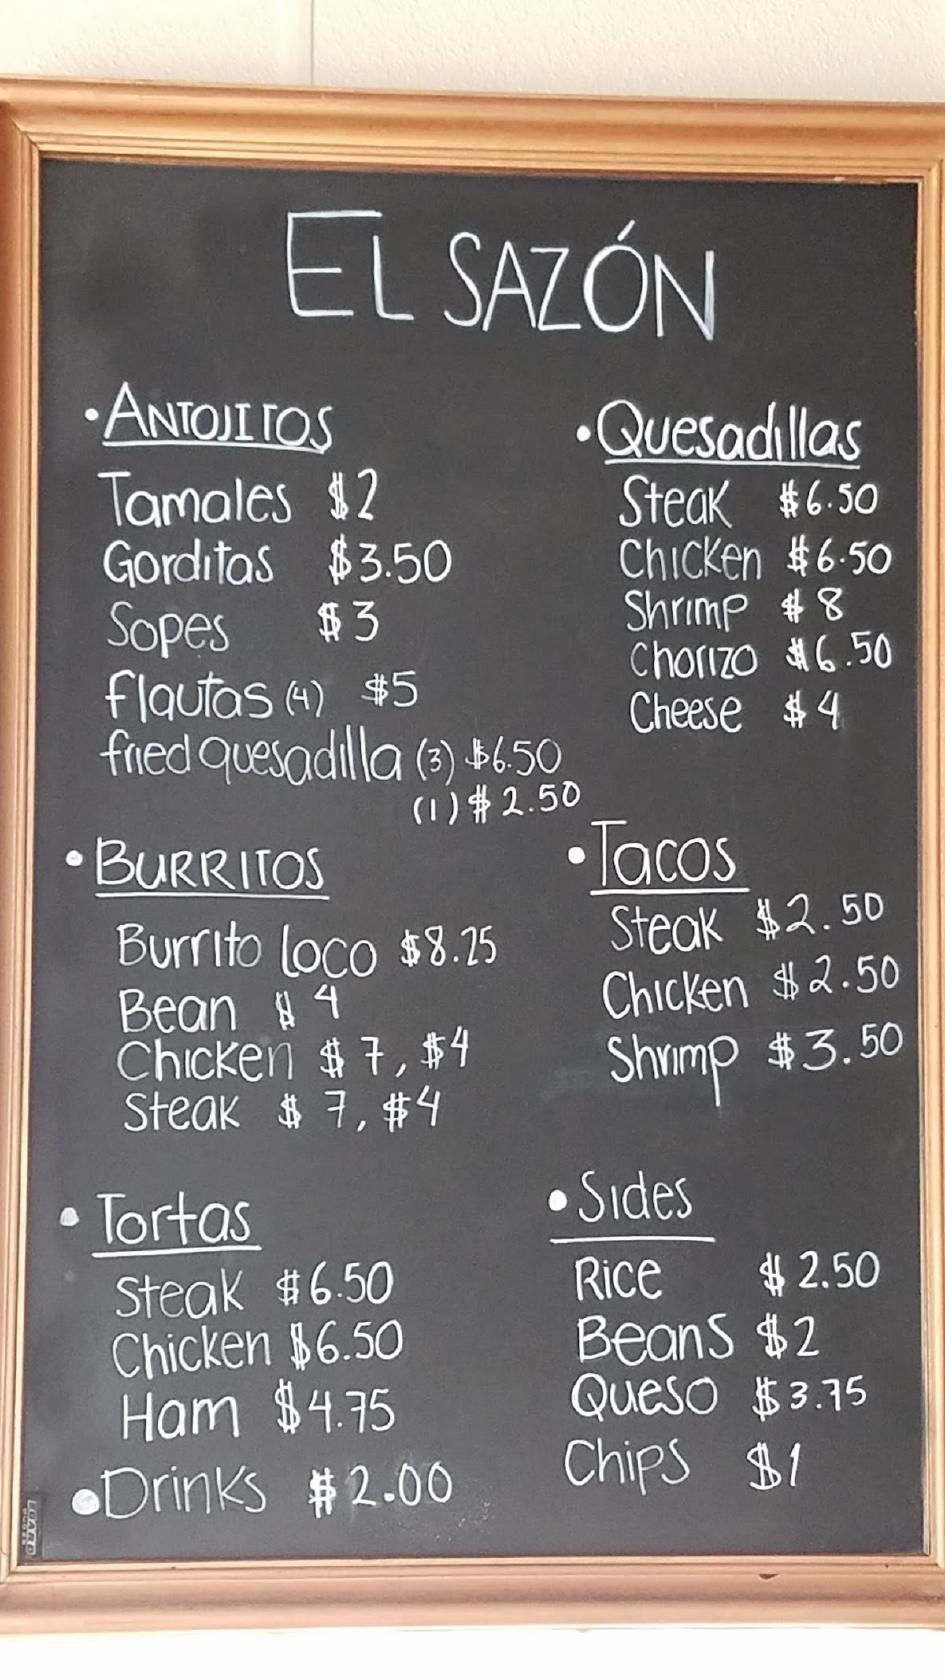 EL SAZÓN
• ANTOJITOS
Tamales $2
Gorditas $3.50
Sopes $3
flautas (4) $5
fried quesadilla (3) $6.50
(1) $2.50
• BURRITOS
Burrito Loco $8.25
Bean $4
Chicken $7, $4
Steak $7, $4
• Tortas
Steak $6.50
Chicken $6.50
Ham $4.75
• Drinks $2.00
• Quesadillas
Steak $6.50
Chicken $6.50
Shrimp $8
Chorizo $6.50
Cheese $4
• Tacos
Steak $2.50
Chicken $2.50
Shrimp $3.50
• Sides
Rice $2.50
Beans $2
Queso $3.75
Chips $1